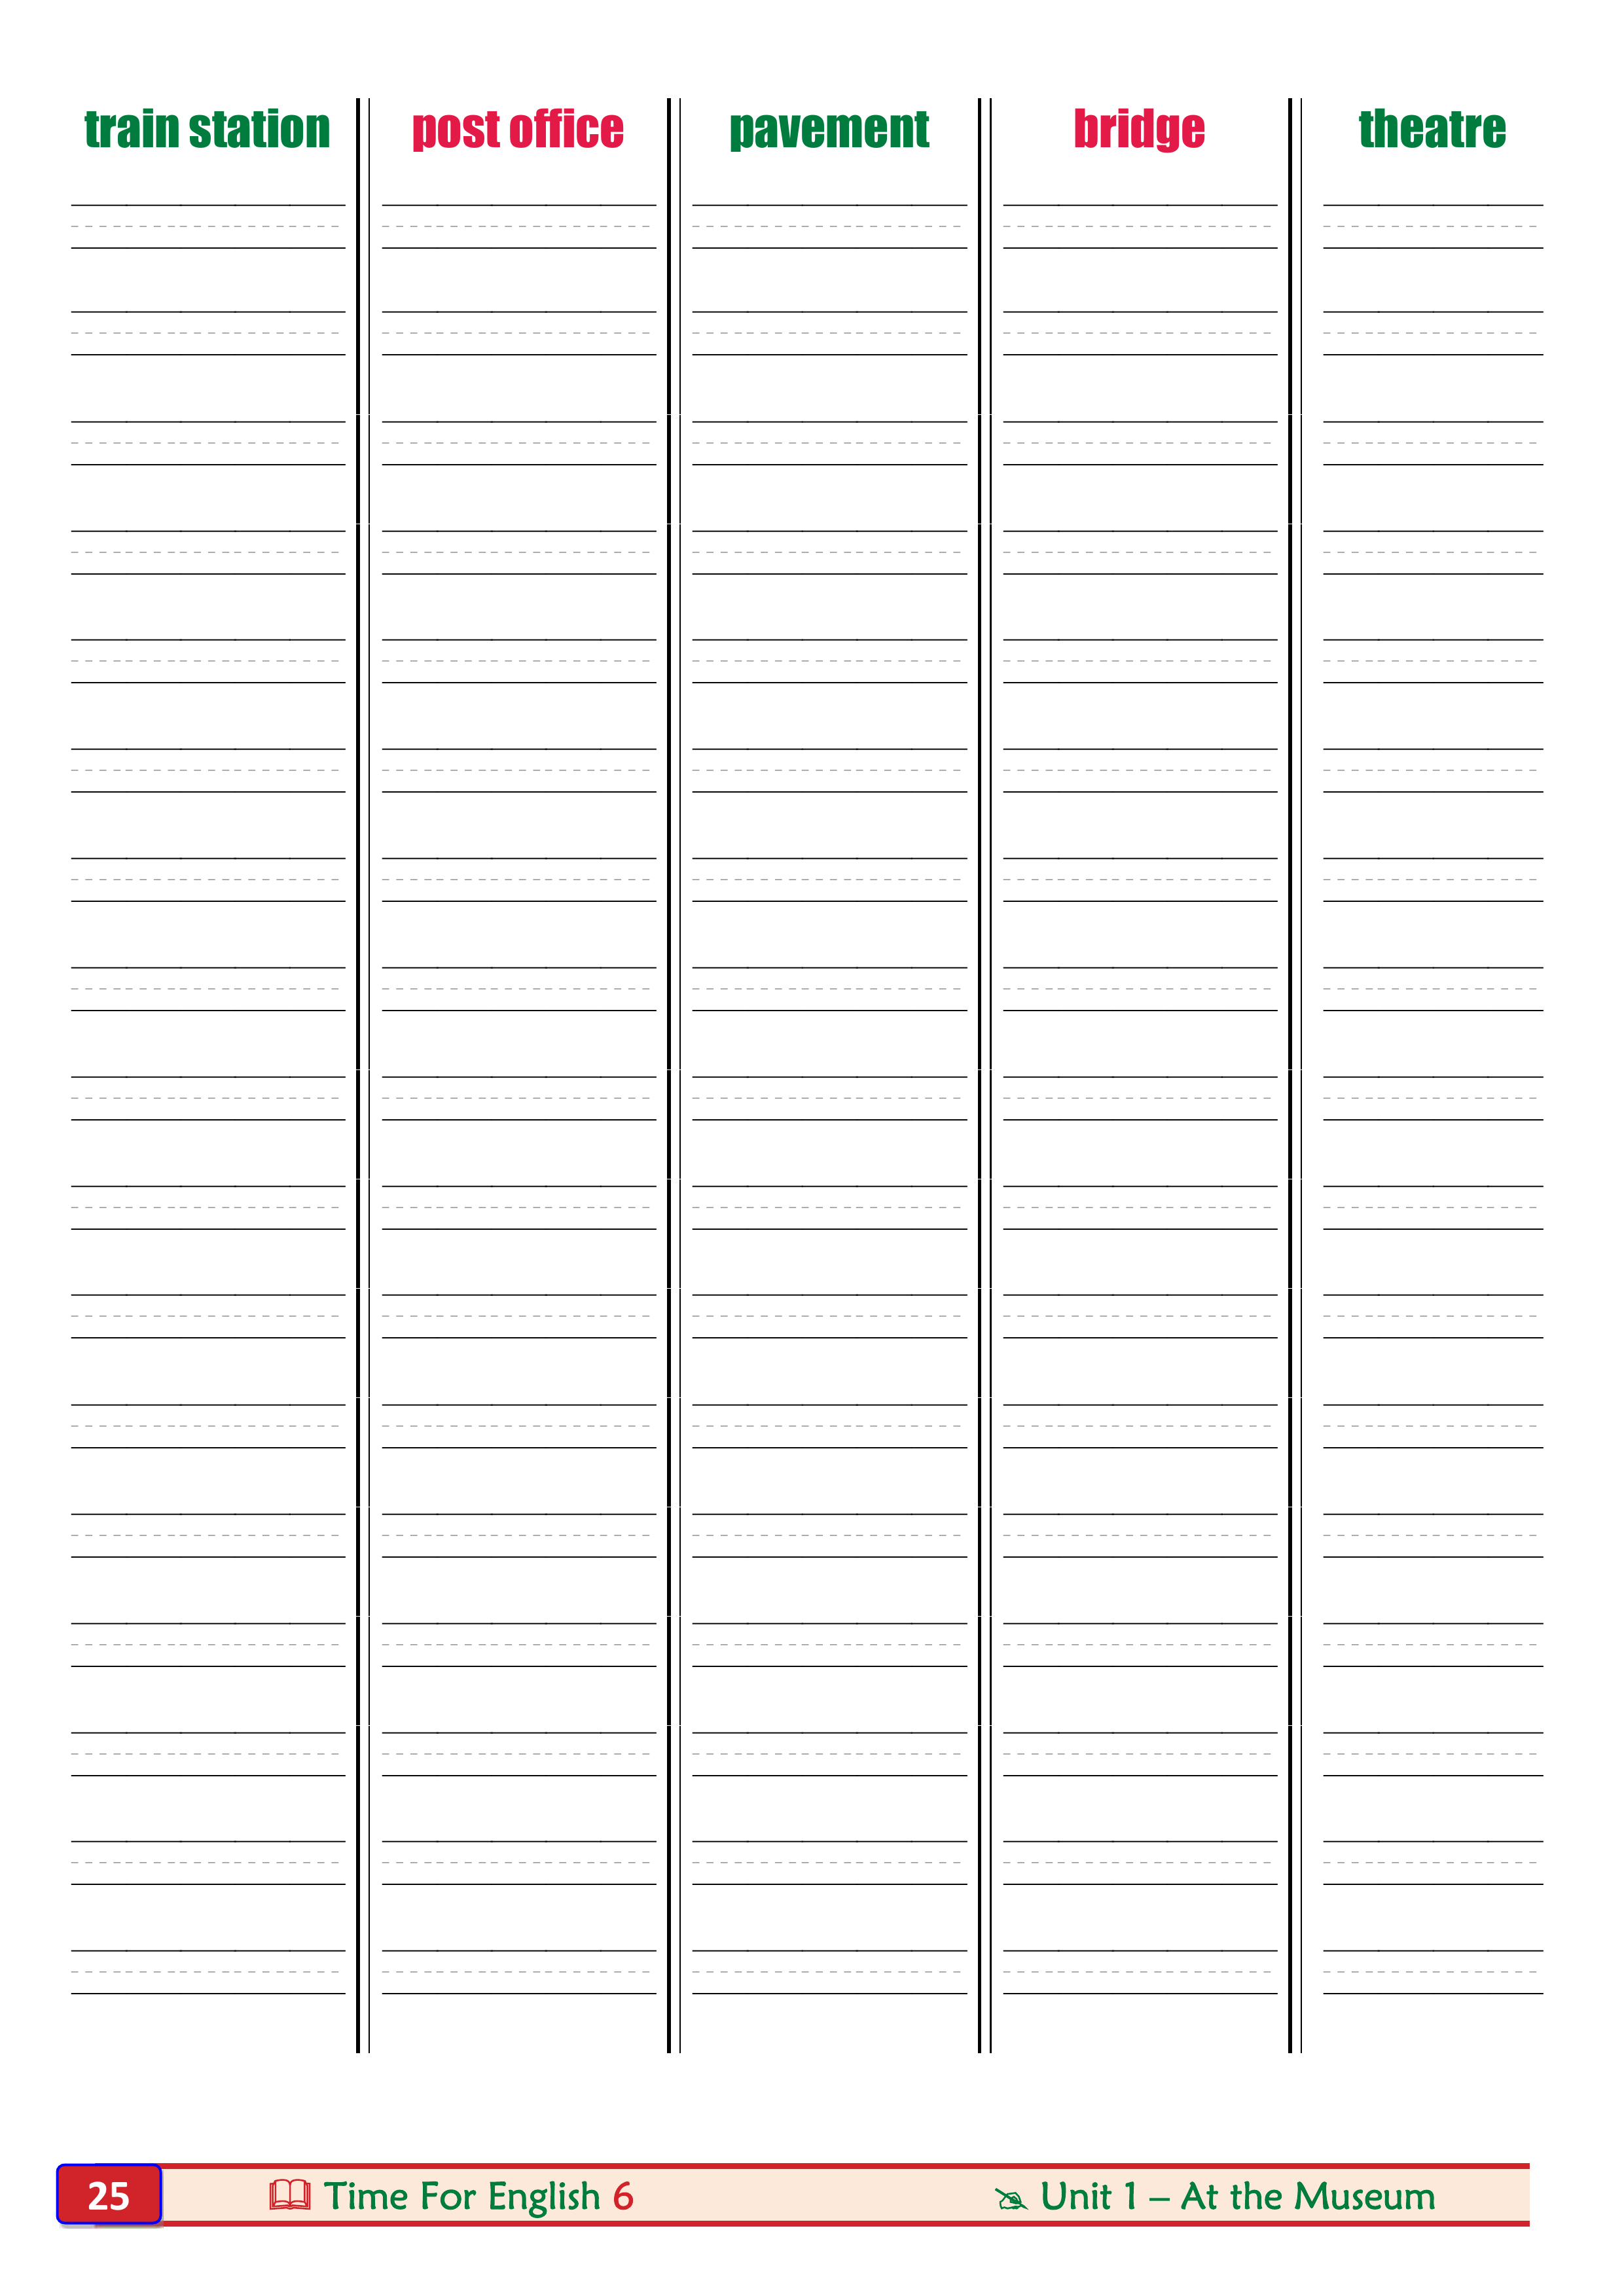 train station post office pavement bridge theatre
25 Time For English 6 Unit 1 – At the Museum